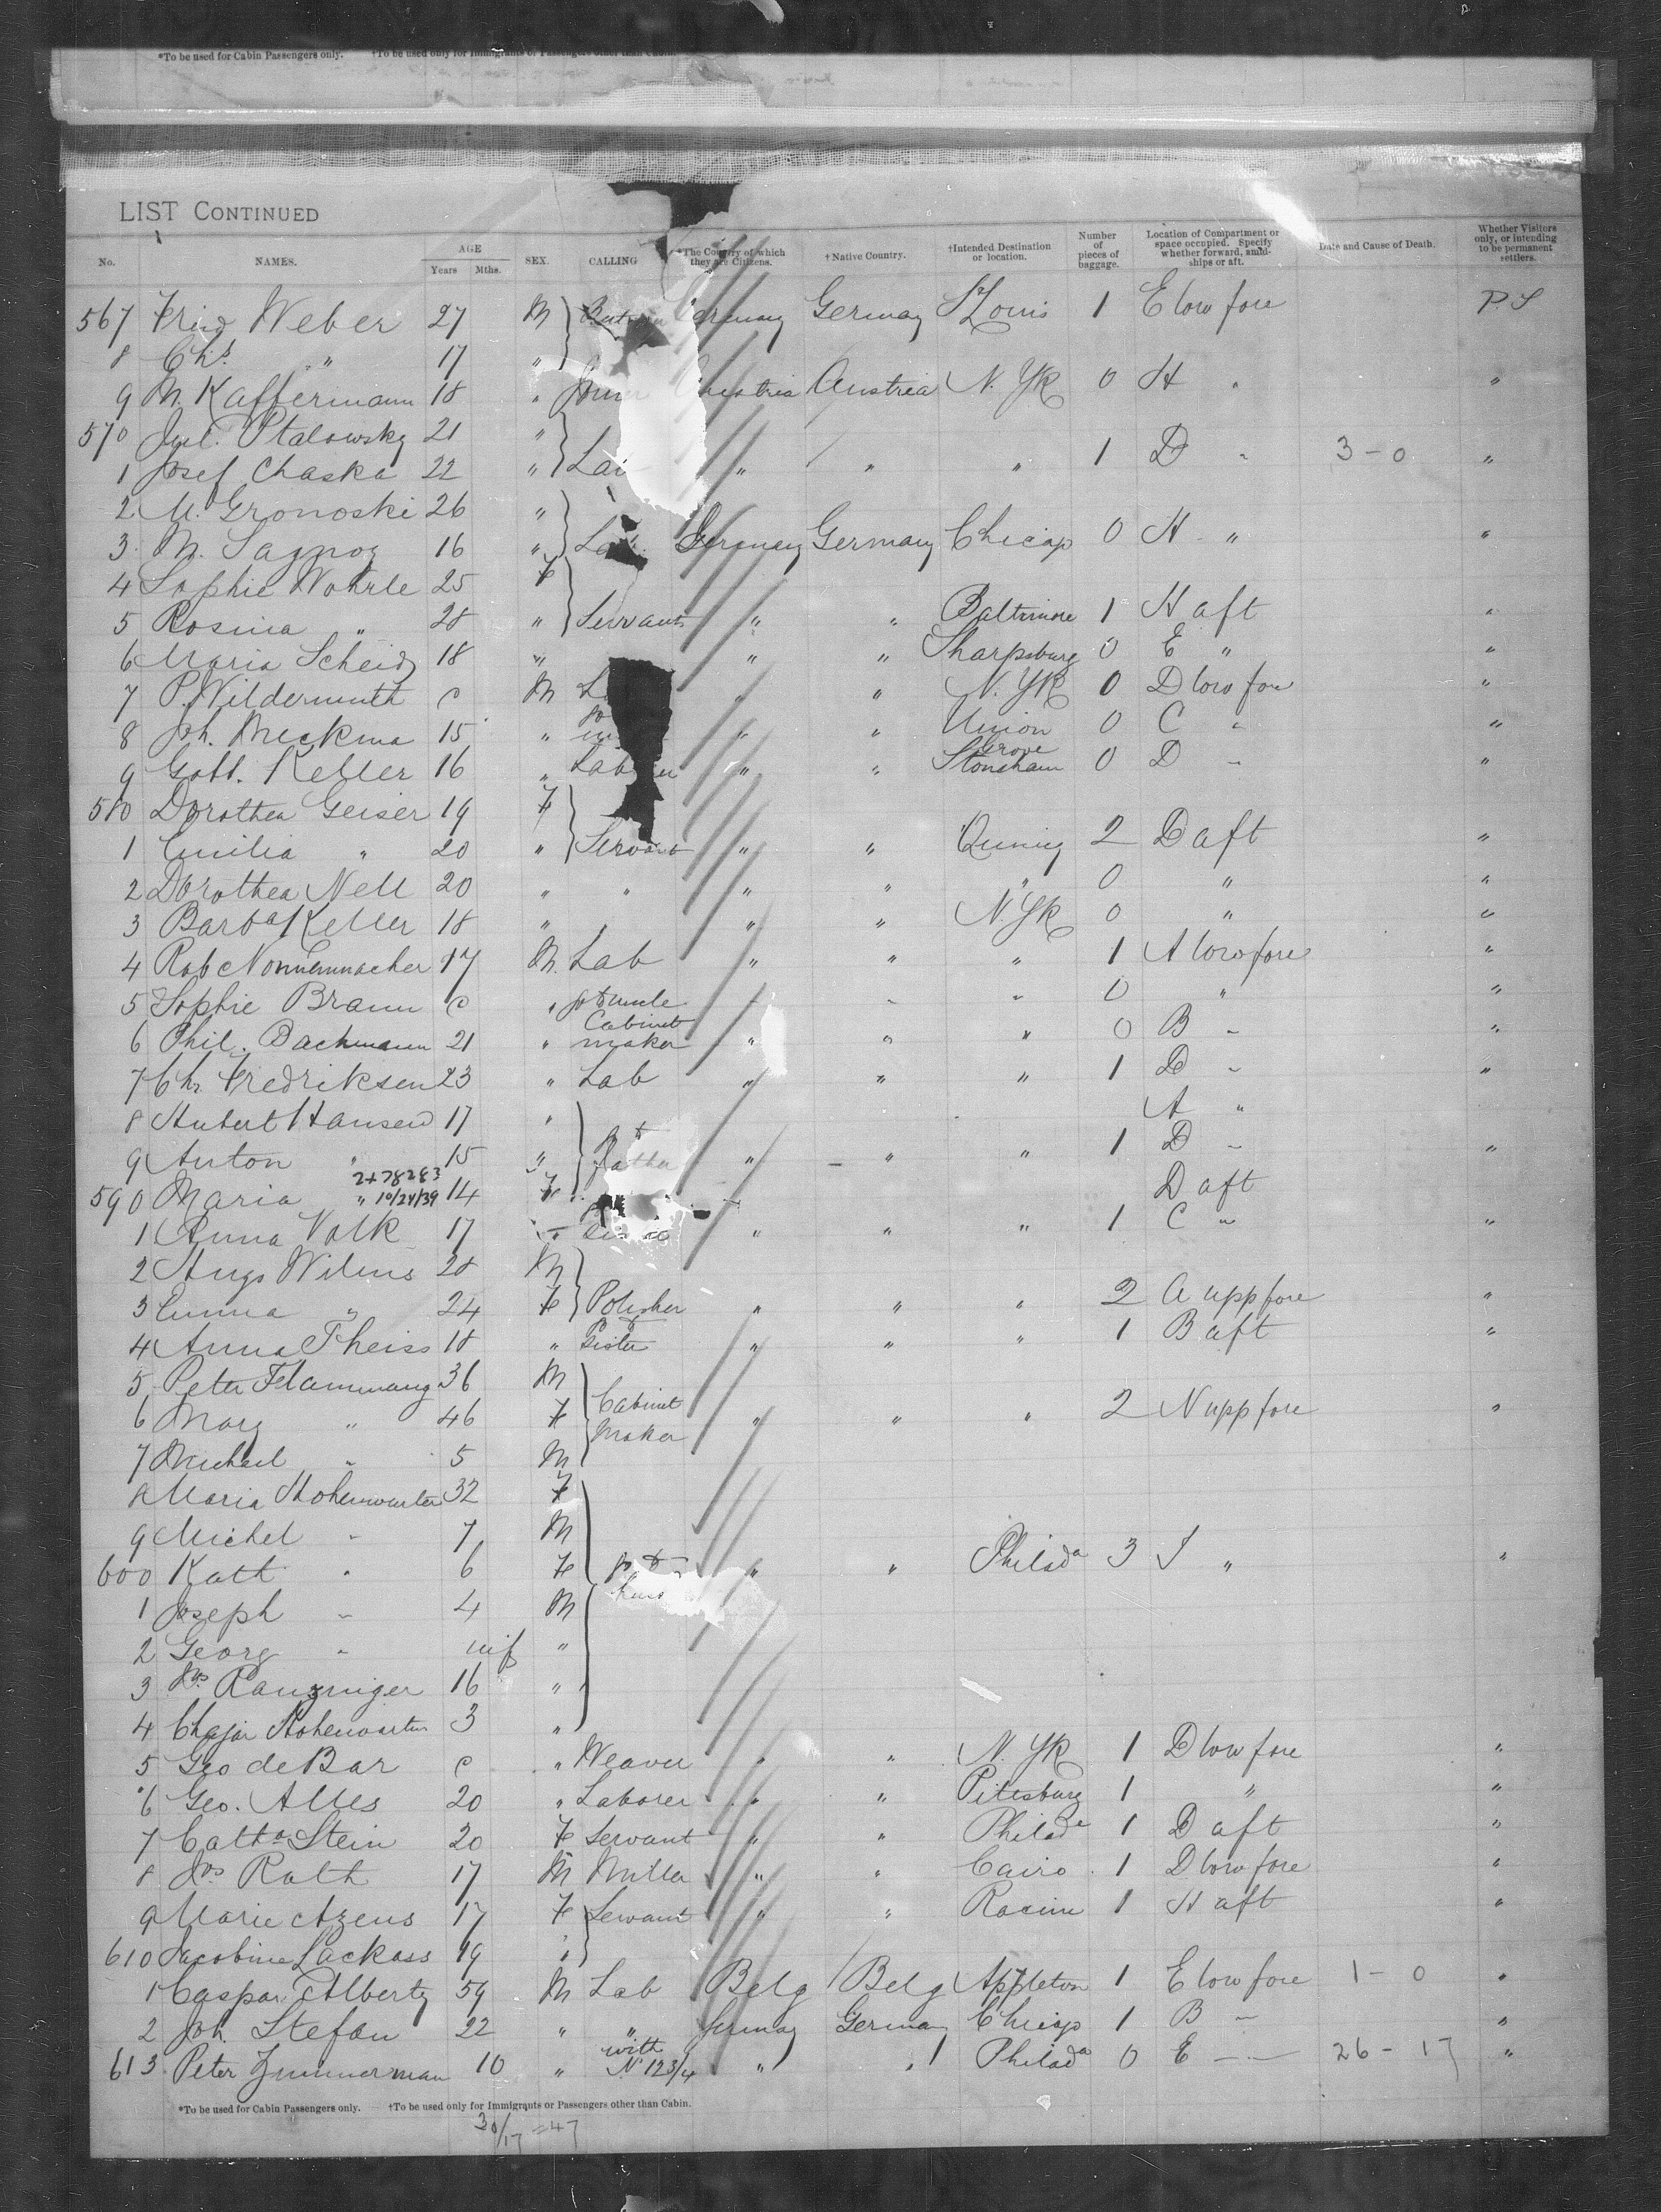 *To be used for Cabin Passengers only. †To be used only for Immigrants or Passengers other than Cabin.
LIST CONTINUED
No. NAMES. AGE Years Mths. SEX. CALLING *The Country of which they are Citizens. †Native Country. †Intended Destination or location. Number of pieces of baggage. Location of Compartment or space occupied. Specify whether forward, amidships or aft. Date and Cause of Death. Whether Visitors only, or intending to be permanent settlers.
567 Weber 27 M Germany Germany St Louis 1 E low fore P.S
8 Chs " 17 "
9 M. Kaffermann 18 " Austria Austria N. Yk 0 H " "
570 Jul. Ptalowsky 21 "
1 Josef Chaska 22 " " " " 1 D " 3-0 "
2 M. Gronoski 26 "
3 M. 16 " Germany Germany Chicago 0 H " "
4 Sophie Wohrle 25 F
5 Rosina " 28 " Servants " " Baltimore 1 H aft "
6 Maria Scheid 18 " " " Sharpsburg 0 E " "
7 P. Wildermuth c M " " N. Yk 0 D low fore "
8 Joh. Meckma 15 " " " Union Grove 0 C " "
9 Gott. Keller 16 " Laborer " " Stoneham 0 D " "
580 Dorothea Geiser 19 F
1 Emilia " 20 " Servant " " Quincy 2 D aft "
2 Dorothea Nell 20 " " " " " 0 " "
3 Barba Keller 18 " " " " N. Yk 0 " "
4 Rob Nonnenmacher 17 M. Lab " " " 1 A low fore "
5 Sophie Braun c " to uncle " " " 0 " "
6 Phil. Bachmann 21 " Cabinet maker " " " 0 B " "
7 Chr Fredriksen 23 " Lab " " " 1 D " "
8 Hubert Hansen 17 " A "
9 Anton " 15 " father " " " 1 D " "
2+78283
590 Maria " 10/24/39 14 F D aft
1 Anna Volk 17 " " " " 1 C " "
2 Augs Wilms 28 M
3 Emma " 24 F Polisher " " " 2 A upp fore "
4 Anna Theiss 18 " Sister " " " 1 B aft "
5 Peter Flammang 36 M
6 Mary " 46 F Cabinet Maker " " " 2 N upp fore "
7 Michael " 5 M
8 Maria Hohenwarter 32 F
9 Michel " 7 M
600 Kath " 6 F " " Philada 3 J " "
1 Joseph " 4 M
2 Georg " inf "
3 Jos Ranzinger 16 "
4 Hohenwarter 3 "
5 Geo de Bar c " Weaver " " N. Yk 1 D low fore "
6 Geo. Alles 20 " Laborer " " Pittsburg 1 " "
7 Catha Stein 20 F Servant " " Philada 1 D aft "
8 Jos Rath 17 M Miller " " Cairo 1 D low fore "
9 Marie Azens 17 F Servant " " Racine 1 H aft "
610 Jacobine Lackass 19 "
1 Caspar Alberty 59 M Lab Belg Belg Appleton 1 E low fore 1-0 "
2 Joh. Stefan 22 " " Germany Germany Chicago 1 B " "
613 Peter Zimmerman 10 " with No 123/4 " " Philada 0 E " 26-17 "
*To be used for Cabin Passengers only. †To be used only for Immigrants or Passengers other than Cabin.
30/17 = 47